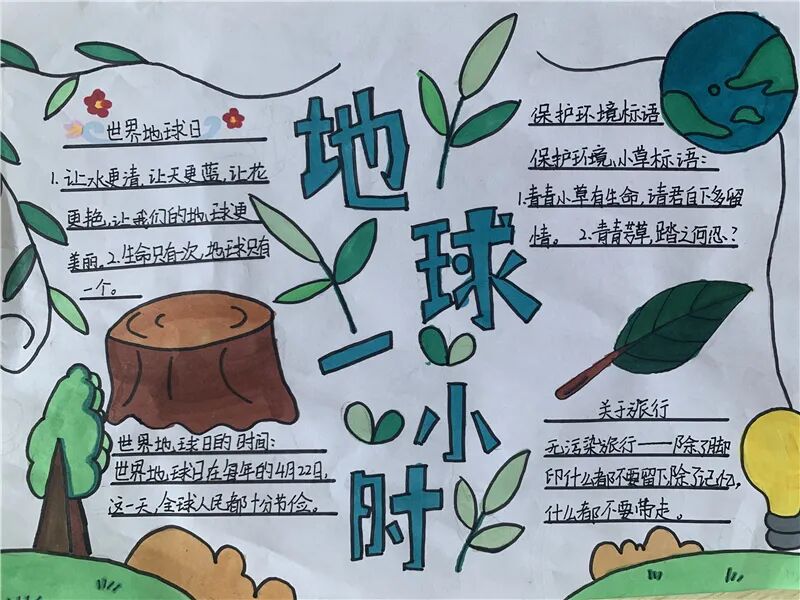 世界地球日
1.让水更清,让天更蓝,让花
更艳,让我们的地球更
美丽。2.生命只有一次,地球只有
一个。
世界地球日的时间:
世界地球日在每年的4月22日,
这一天,全球人民都十分节俭。
地
球
一
小
时
保护环境标语
保护环境,小草标语:
1.青青小草有生命,请君自下多留
情。 2.青青芳草,踏之何忍?
关于旅行
无污染旅行——除了脚
印什么都不要留下,除了记忆,
什么都不要带走。